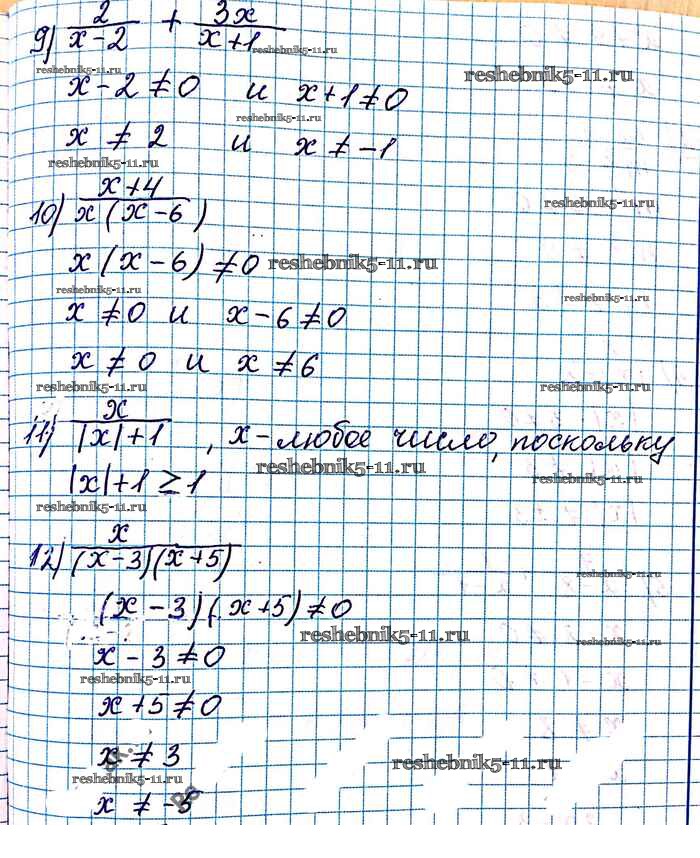 9) 2/(x-2) + 3x/(x+1)
reshebnik5-11.ru
reshebnik5-11.ru reshebnik5-11.ru
x-2≠0 и x+1≠0
reshebnik5-11.ru
x ≠ 2 и x ≠ -1
reshebnik5-11.ru
10) (x+4)/(x(x-6))
reshebnik5-11.ru
x(x-6)≠0 reshebnik5-11.ru
reshebnik5-11.ru reshebnik5-11.ru
x≠0 и x-6≠0
x≠0 и x≠6
reshebnik5-11.ru reshebnik5-11.ru
11) x/(|x|+1), x-любое число, поскольку
reshebnik5-11.ru
|x|+1≥1 reshebnik5-11.ru
reshebnik5-11.ru
12) x/((x-3)(x+5))
reshebnik5-11.ru
(x-3)(x+5)≠0
reshebnik5-11.ru reshebnik5-11.ru
x-3≠0
reshebnik5-11.ru
x+5≠0
x≠3
reshebnik5-11.ru
reshebnik5-11.ru
x≠-5